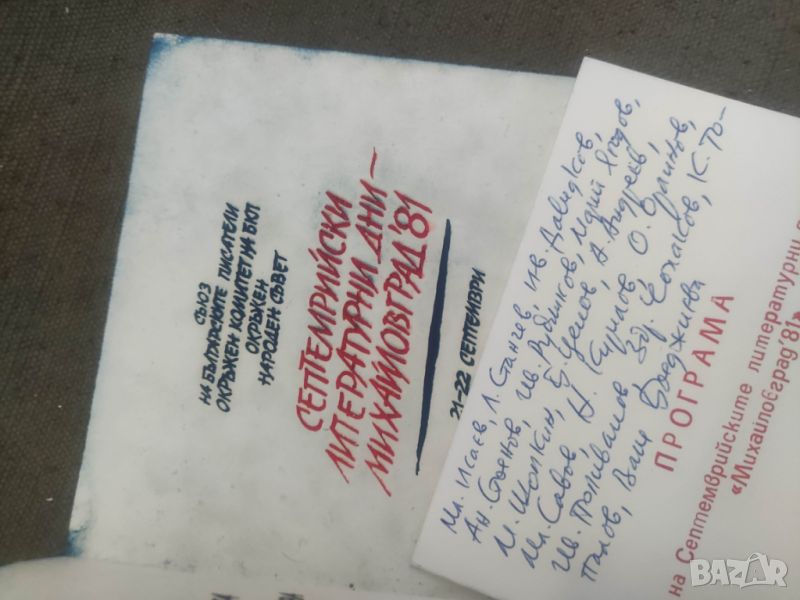 СЪЮЗ
НА БЪЛГАРСКИТЕ ПИСАТЕЛИ
ОКРЪЖЕН КОМИТЕТ НА БКП
ОКРЪЖЕН
НАРОДЕН СЪВЕТ
СЕПТЕМРИЙСКИ
ЛИТЕРАТУРНИ ДНИ –
МИХАЙЛОВГРАД '81
21–22 СЕПТЕМВРИ
Мл. Исаев, Л. Стайчев, Ив. Давидков,
Ан. Стоянов, Ив. Рудников, Марий Ягодов,
М. Шопкин, Б. Ценов, А. Андреев,
Мл. Савов, Н. Кирилов, О. Орлинов,
Ив. Поливанов, Зд. Чохаков, К. То-
палов, Ваня Бояджиева
ПРОГРАМА
на Септемврийските литературни
«Михайловград '81»
BAZAR